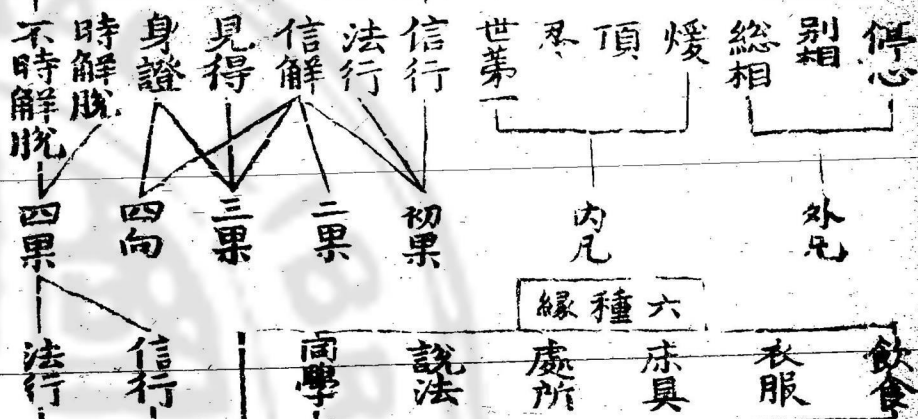 停心
別相
総相
煖
頂
忍
世苐一
信行
法行
信解
見得
身證
時解脫
不時解脫
外凡
内凡
初果
二果
三果
四向
四果
六種緣
飲食
衣服
床具
處所
說法
同學
信行
法行